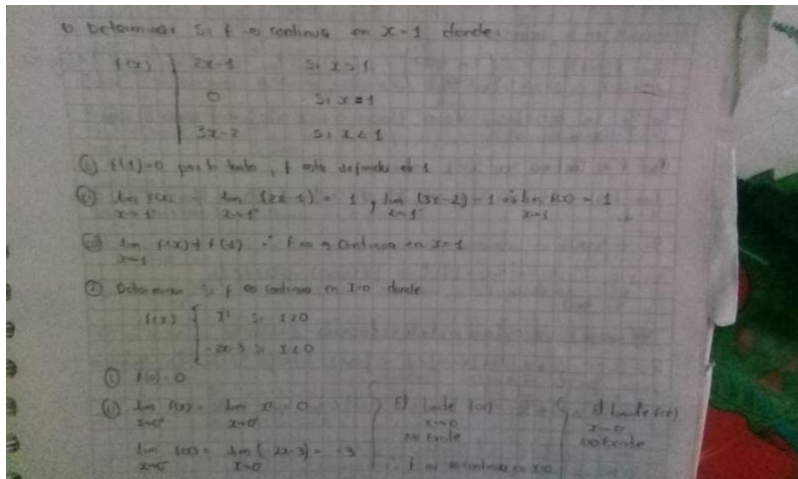 ① Determinar Si f es continua en x=1 donde:
f(x) { 2x-1 Si x>1
0 Si x=1
3x-2 Si x<1
(i) f(1)=0 por lo tanto, f esta definida en 1
(ii) lim x→1⁺ f(x) = lim x→1⁺ (2x-1) = 1, lim x→1⁻ (3x-2)=1 ∴ lim x→1 f(x) = 1
(iii) lim x→1 f(x)≠f(1) ∴ f no es continua en x=1
② Determinar Si f es continua en x=0 donde
f(x) { x² Si x≥0
-2x-3 Si x<0
(i) f(0)=0
(ii) lim x→0⁺ f(x) = lim x→0⁺ x² = 0 } El limite f(x) x→0 No Existe { ∴ El limite f(x) x→0 No Existe
lim x→0⁻ f(x) = lim x→0⁻ (-2x-3) = -3 ∴ f no es continua en x=0